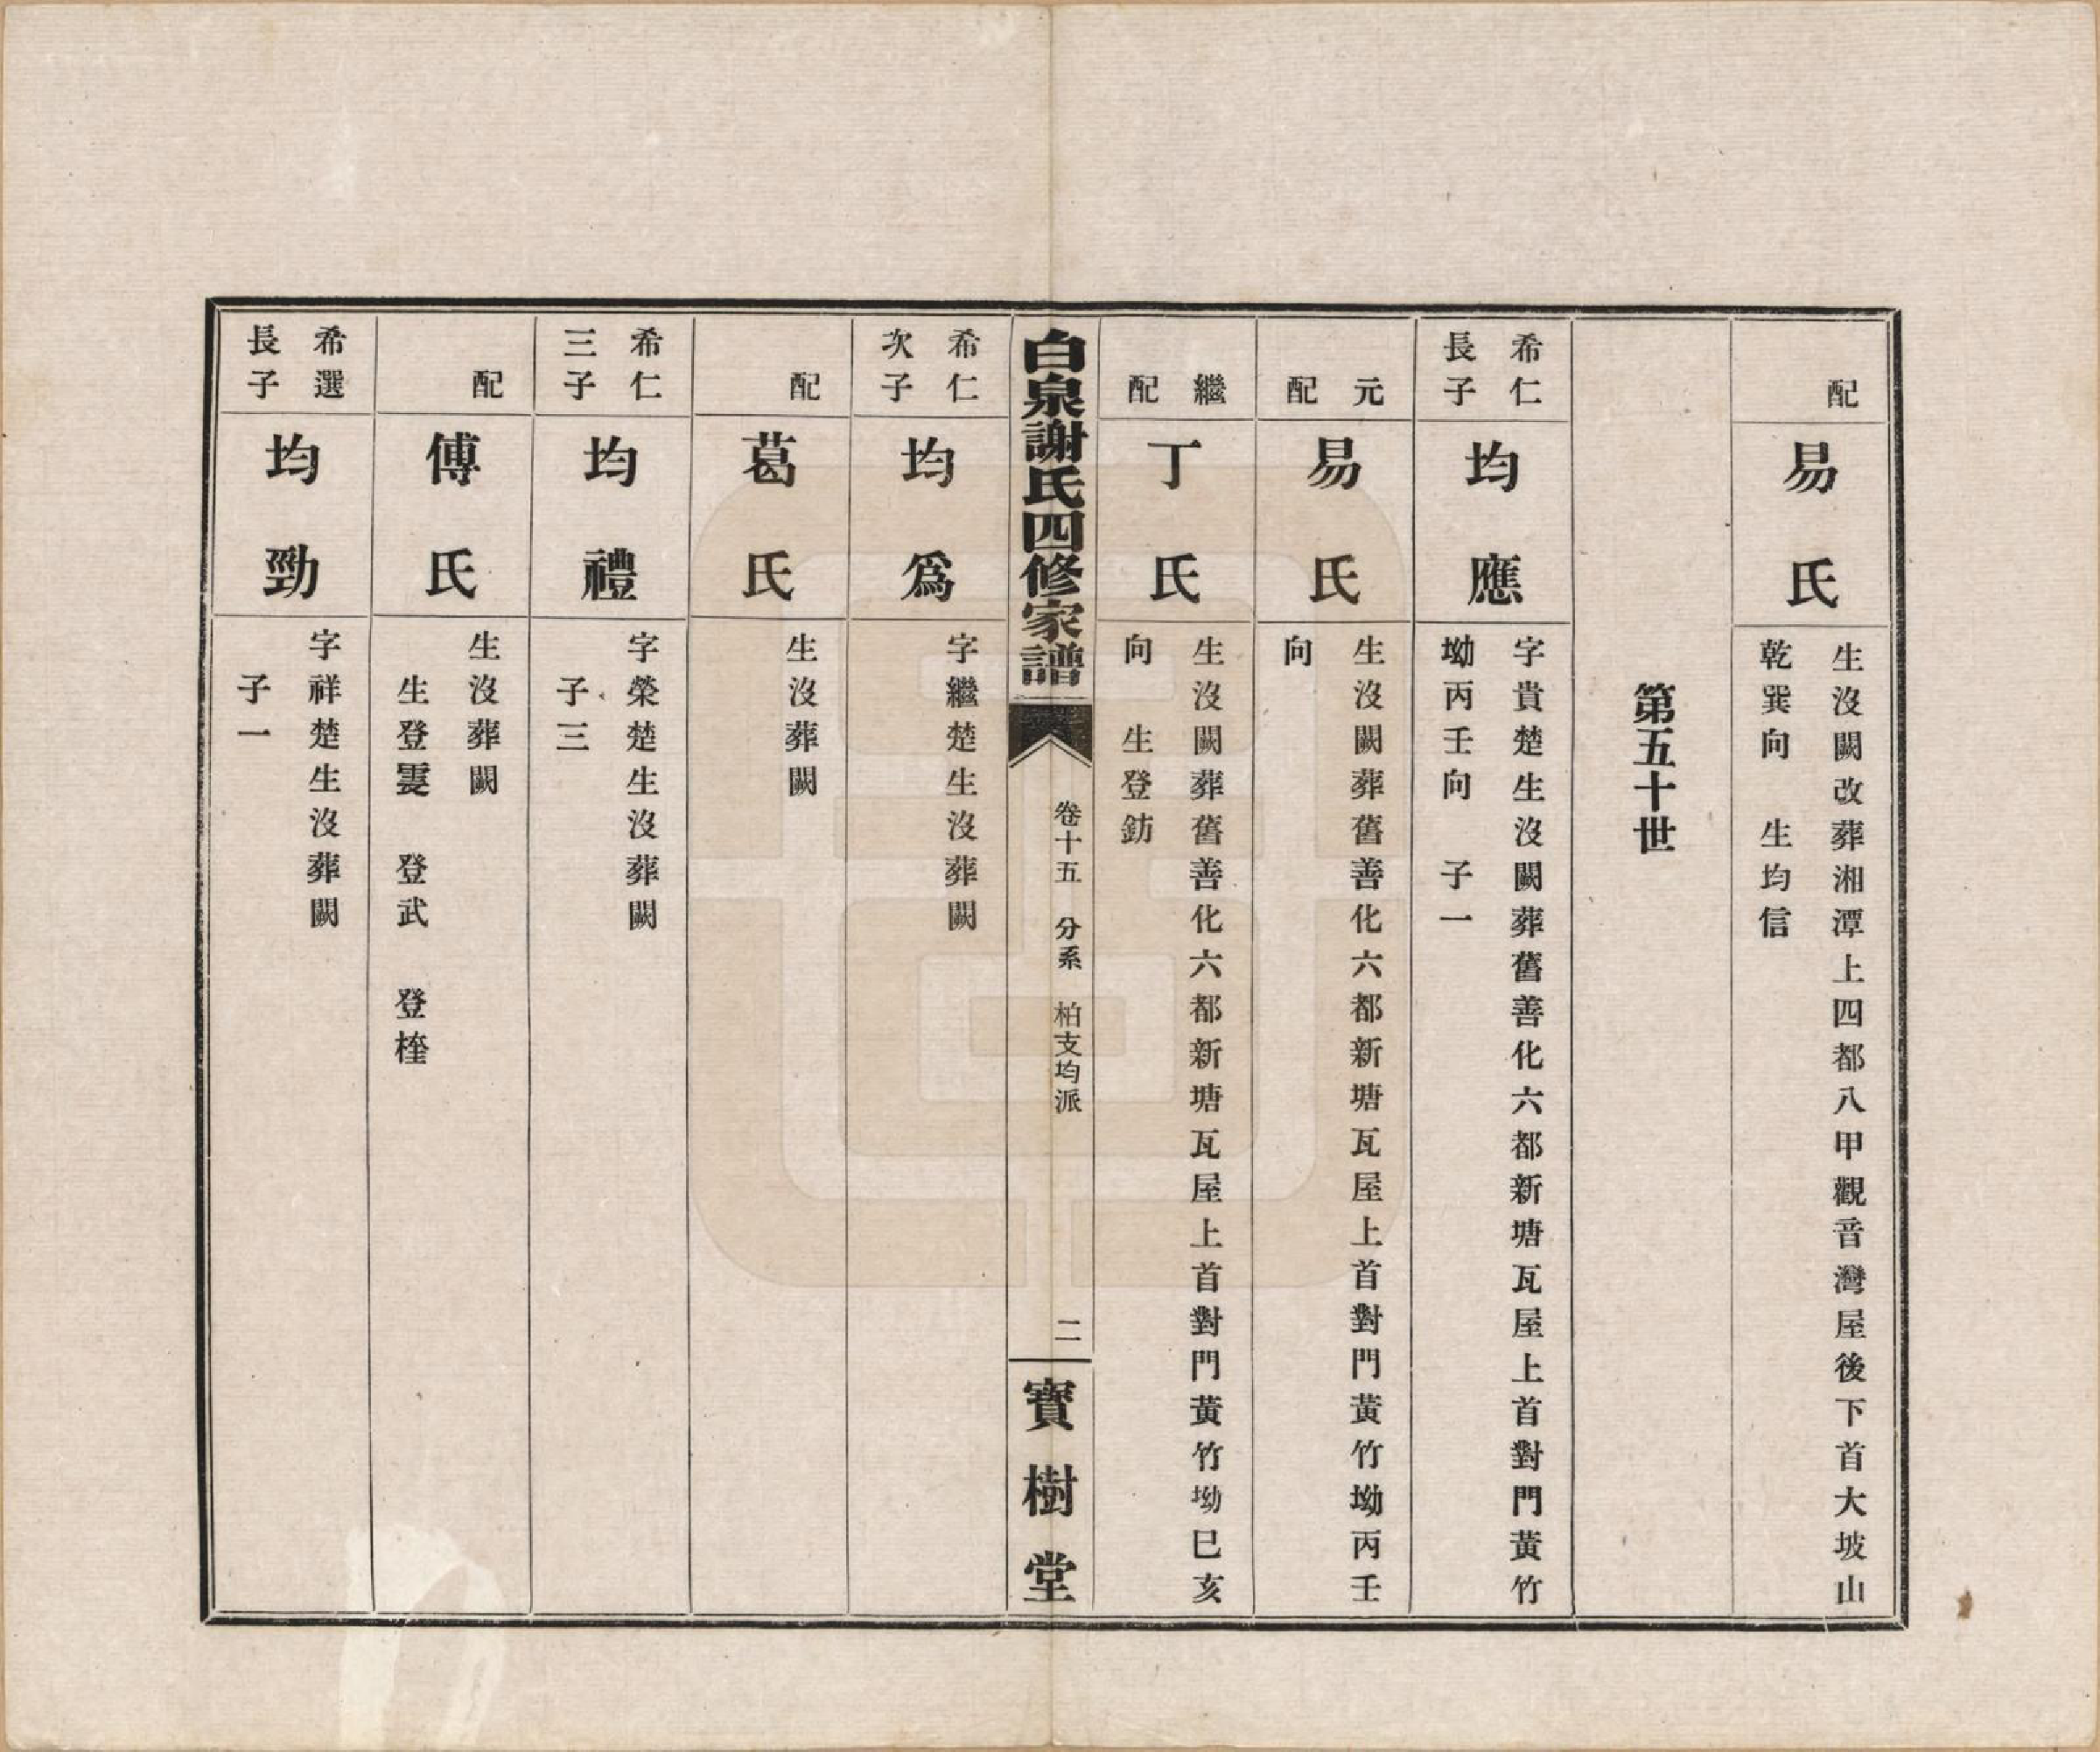 配
易氏
生沒闕改葬湘潭上四都八甲觀音灣屋後下首大坡山
乾巽向　生均信
第五十世
希仁
長子
均應
字貴楚生沒闕葬舊善化六都新塘瓦屋上首對門黃竹
坳丙壬向　子一
元
配
易氏
生沒闕葬舊善化六都新塘瓦屋上首對門黃竹坳丙壬
向
繼
配
丁氏
生沒闕葬舊善化六都新塘瓦屋上首對門黃竹坳巳亥
向　生登鈁
白泉謝氏四修家譜
卷十五　分系　柏支均派
二
寶樹堂
希仁
次子
均爲
字繼楚生沒葬闕
配
葛氏
生沒葬闕
希仁
三子
均禮
字榮楚生沒葬闕
子三
配
傅氏
生沒葬闕
生登雲　登武　登㮚
希選
長子
均勁
字祥楚生沒葬闕
子一